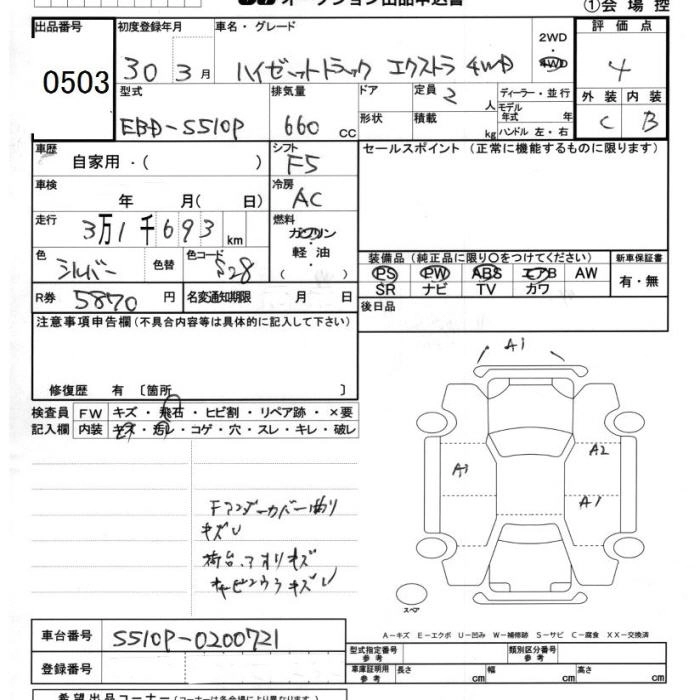 オークション出品申込書
①会場控
出品番号
0503
初度登録年月
30 3月
車名・グレード
ハイゼットトラック エクストラ 4WD
2WD
4WD
評価点
4
型式
EBD-S510P
排気量
660 cc
ドア
形状
定員 2 人
積載 kg
ディーラー・並行
モデル年式 年
ハンドル 左・右
外装 内装
C B
車歴
自家用・( )
シフト
F5
セールスポイント (正常に機能するものに限ります)
車検
年 月( 日)
冷房
AC
走行
3万1千693 km
燃料
ガソリン
軽油
( )
色
シルバー
色替
色コード
S28
装備品(純正品に限り○をつけてください)
PS PW ABS エアB AW
SR ナビ TV カワ
新車保証書
有・無
R券 5870 円
名変通知期限 月 日
後日品
注意事項申告欄(不具合内容等は具体的に記入して下さい)
修復歴 有 〔箇所 〕
検査員
記入欄
FW キズ・飛石・ヒビ割・リペア跡・×要
内装 キズ・汚レ・コゲ・穴・スレ・キレ・破レ
A1
A2
A1
Fアンダーカバー曲り
キズU
荷台、アオリキズ
キャビンウラキズU
スペア
A-キズ E-エクボ U-凹み W-補修跡 S-サビ C-腐食 XX-交換済
車台番号 S510P-0200721
登録番号
型式指定番号 参考
類別区分番号 参考
車庫証明用 参考
長さ cm 幅 cm 高さ cm
希望出品コーナー(コーナーは各会場により異なります。)